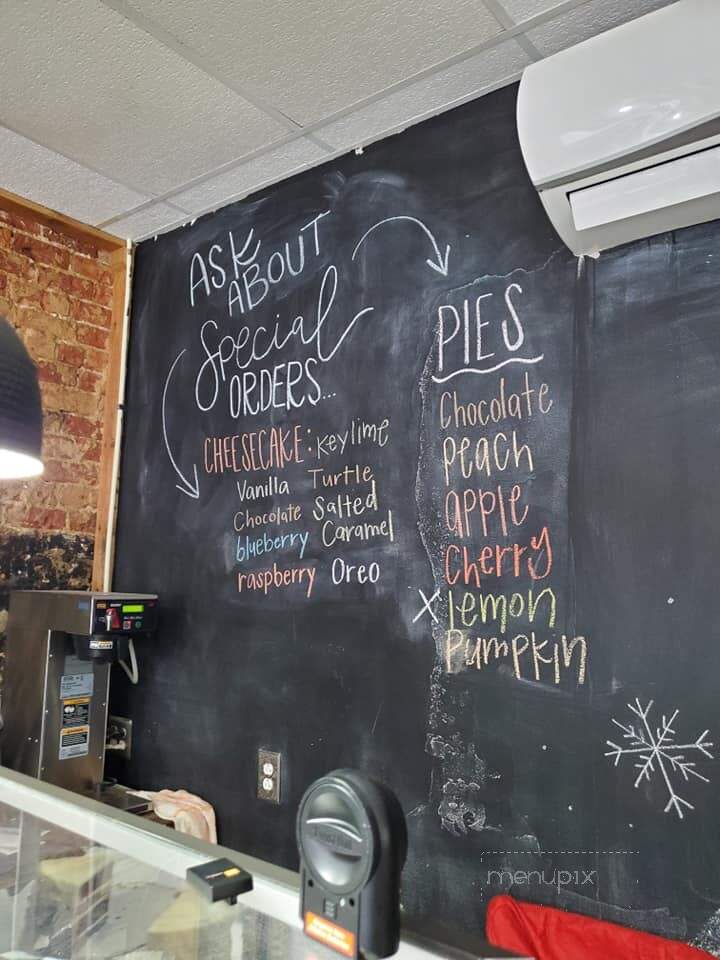 ASK
ABOUT
Special
ORDERS...
CHEESECAKE: Key lime
Vanilla Turtle
Chocolate Salted
blueberry Caramel
raspberry Oreo
PIES
Chocolate
Peach
apple
Cherry
X Lemon
Pumpkin
menupix